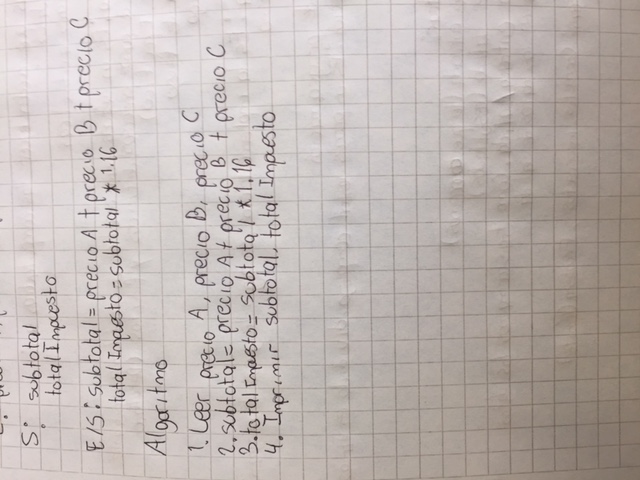 S: subtotal
total Impuesto
E/S: subtotal = precio A + precio B + precio C
total Impuesto = subtotal * 1.16
Algoritmo
1. Leer precio A, precio B, precio C
2. subtotal = precio A + precio B + precio C
3. total Impuesto = subtotal * 1.16
4. Imprimir subtotal, total Impuesto